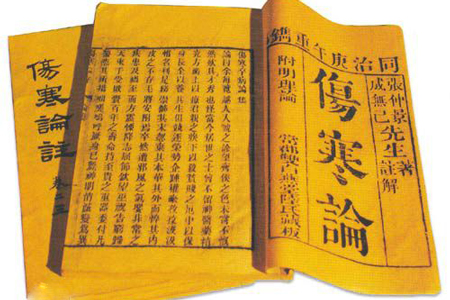 同治庚午年重鐫
張仲景先生著
成無己註解
傷寒論
附明理論
常郡雙白燕堂陸氏藏板
傷寒卒病論集
論曰余每覽越人入虢之診望齊侯之色未嘗不慨
然歎其才秀也怪當今居世之士曾不留神醫藥精究
方術上以療君親之疾下以救貧賤之厄中以保
身長全以養其生但競逐榮勢企踵權豪孜孜汲汲
惟名利是務崇飾其末忽棄其本華其外而悴其內
皮之不存毛將安附焉卒然遭邪風之氣嬰非常之
疾患及禍至而方震慄降志屈節欽望巫祝告窮歸
天束手受敗賫百年之壽命持至貴之重器委付凡
醫恣其所措咄嗟嗚呼厥身已斃神明消滅變爲異
傷寒論註